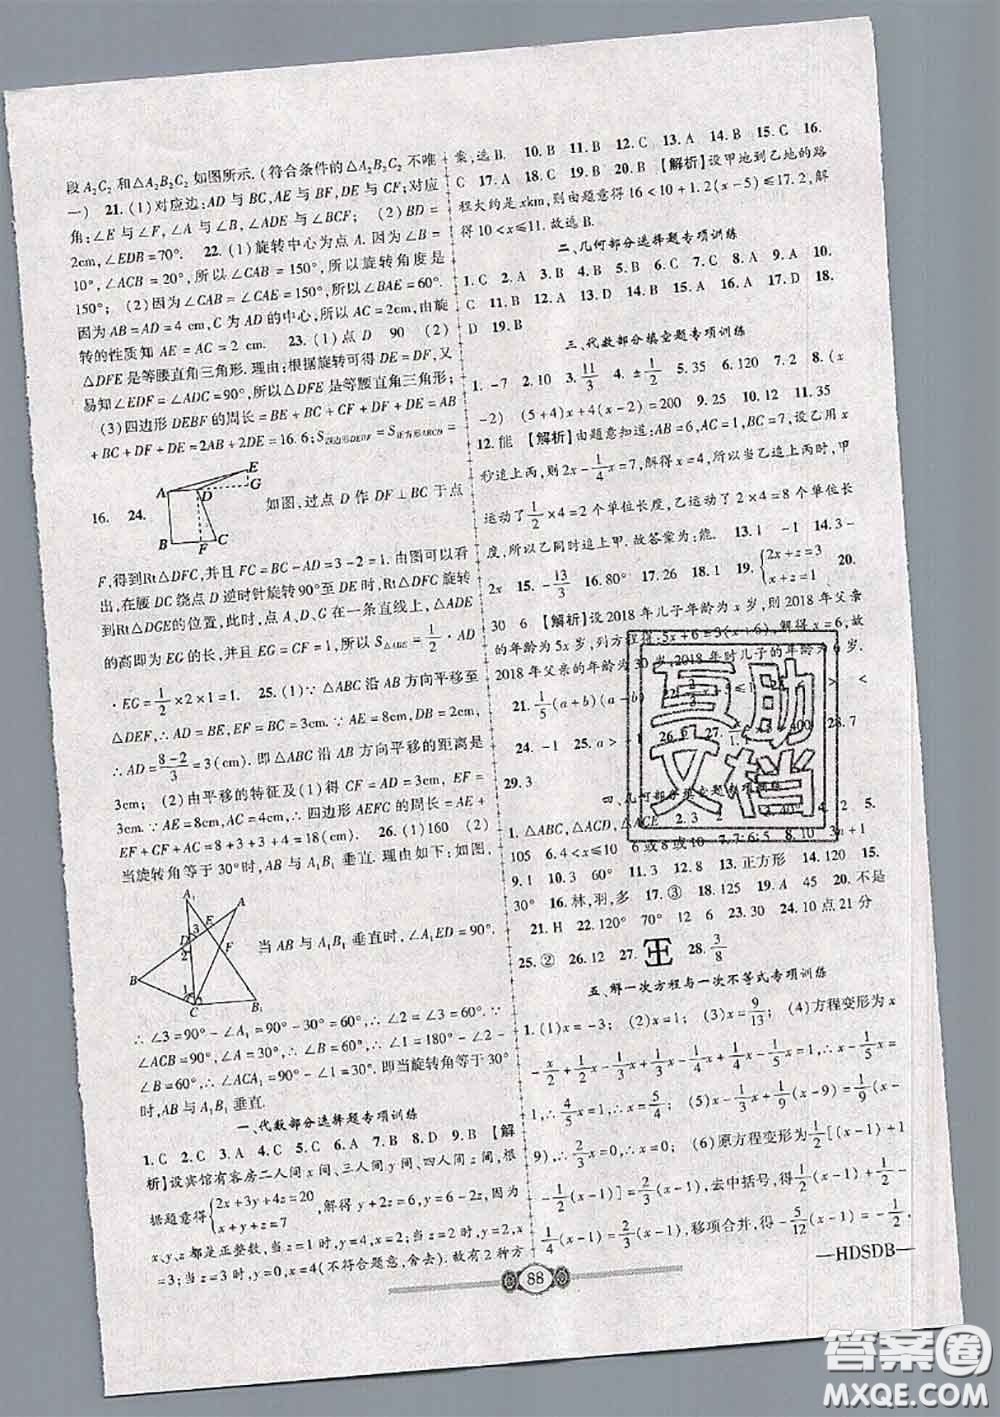 段A₂C₂和△A₂B₂C₂如图所示.(符合条件的△A₂B₂C₂不唯
一) 21.(1)对应边:AD与BC,AE与BF,DE与CF;对应
角:∠E与∠F,∠A与∠B,∠ADE与∠BCF; (2)BD=
2cm,∠EDB=70°. 22.(1)旋转中心为点A.因为∠B=
10°,∠ACB=20°,所以∠CAB=150°,所以旋转角度是
150°; (2)因为∠CAB=∠CAE=150°,所以∠BAE=60°.
因为AB=AD=4 cm,C为AD的中心,所以AC=2cm,由旋
转的性质知AE=AC=2 cm. 23.(1)点D 90 (2)
△DFE是等腰直角三角形.理由:根据旋转可得DE=DF,又
易知∠EDF=∠ADC=90°,所以△DFE是等腰直角三角形;
(3)四边形DEBF的周长=BE+BC+CF+DF+DE=AB
+BC+DF+DE=2AB+2DE=16.6;S四边形DEDF=S正方形ABCD=
16. 24.
A E D G B F C
如图,过点D作DF⊥BC于点
F,得到Rt△DFC,并且FC=BC-AD=3-2=1.由图可以看
出,在腰DC绕点D逆时针旋转90°至DE时,Rt△DFC旋转
到Rt△DGE的位置,此时,点A、D、G在一条直线上,△ADE
的高即为EG的长,并且EG=CF=1,所以S△ADE=1/2·AD
·EG=1/2×2×1=1. 25.(1)∵△ABC沿AB方向平移至
△DEF,∴AD=BE,EF=BC=3cm.∵AE=8cm,DB=2cm.
∴AD=(8-2)/3=3(cm).即△ABC沿AB方向平移的距离是
3cm; (2)由平移的特征及(1)得CF=AD=3cm, EF=
3cm.∵AE=8cm,AC=4cm.∴四边形AEFC的周长=AE+
EF+CF+AC=8+3+3+4=18(cm). 26.(1)160 (2)
当旋转角等于30°时,AB与A₁B₁垂直.理由如下:如图,
A₁ A E D 3 F 2 B 1 C B₁
当AB与A₁B₁垂直时,∠A₁ED=90°,
∴∠3=90°-∠A₁=90°-30°=60°,∴∠2=∠3=60°.∵
∠ACB=90°,∠A=30°,∴∠B=60°,∴∠1=180°-∠2-
∠B=60°,∴∠ACA₁=90°-∠1=30°.即当旋转角等于30°
时,AB与A₁B₁垂直.
一、代数部分选择题专项训练
1.C 2.C 3.A 4.C 5.C 6.A 7.B 8.D 9.B 【解
析】设宾馆有客房二人间x间、三人间y间、四人间z间,根
据题意得{2x+3y+4z=20 x+y+z=7,解得y+2z=6,y=6-2z,∵
x、y、z都是正整数,当z=1时,y=4,x=2;当z=2时,y=2,x
=3;当z=3时,y=0,x=4(不符合题意,舍去).故有2种方
案,选B. 10.B 11.B 12.C 13.A 14.B 15.C 16.
C 17.A 18.C 19.C 20.B 【解析】设甲地到乙地的路
程大约是xkm,则由题意得16<10+1.2(x-5)≤17.2,解
得10<x≤11.故选B.
二、几何部分选择题专项训练
1.C 2.A 3.B 4.C 5.B 6.C 7.C 8.A 9.A 10.
C 11.B 12.D 13.B 14.B 15.C 16.A 17.D 18.
D 19.B
三、代数部分填空题专项训练
1.-7 2.10 3.11/3 4.±1/2 5.35 6.120 7.2 8.(x
-2) (5+4)x+4(x-2)=200 9.25 10.12 11.35
12.能 【解析】由题意知道:AB=6,AC=1,BC=7.设乙用x
秒追上丙,则2x-1/4x=7,解得x=4,所以当乙追上丙时,甲
运动了1/2×4=2个单位长度,乙运动了2×4=8个单位长
度,所以乙同时追上甲.故答案为:能. 13.1 -1 14.3-
2x 15.-13/3 16.80° 17.26 18.1 19.{2x+z=3 x+z=3 20.
30 6 【解析】设2018年儿子年龄为x岁,则2018年父亲
的年龄为5x岁,列方程得:5x+6=3(x+6),解得x=6,故
2018年父亲的年龄为30岁,2018年时儿子的年龄为6岁.
21.1/5(a+b)(a-b)
24.-1 25.a> 28.7
29.3
1.△ABC,△ACD,△ACE 2.3 4.2 5.
105 6.4<x≤10 6或8或10 7.7:6:5 8.10 3n+1
9.1 10.3 60° 11.3 12.8 13.正方形 14.120 15.
30° 16.林,羽,多 17.③ 18.125 19.A 45 20.不是
21.H 22.120° 70° 12 6 23.30 24.10点21分
25.② 26.12 27. 28.3/8
五、解一次方程与一次不等式专项训练
1.(1)x=-3; (2)x=1; (3)x=9/13; (4)方程变形为x
-x/2+1/2-1/5x+1/5=1/2x+1/2-1/3x-1/3x+1/2=1,∴x-1/5x=
1,∴4/5x=1,∴x=5/4; (5)x-1/3x+1/3(x-9)=1/9(x-
9),∴1/3x=0,∴x=0; (6)原方程变形为1/2[(x-1)+1
-1/2(x-1)]=2/3(x-1),去中括号,得1/2(x-1)+1/2-
1/4(x-1)=2/3(x-1),移项合并,得-5/12(x-1)=-1/2,
—HDSDB—
88
互助
文档
答案圈
MXQE.COM